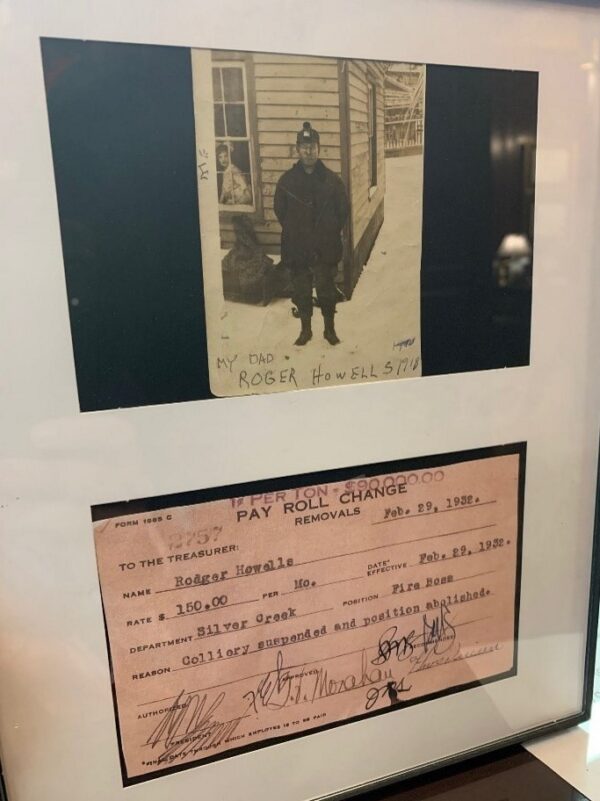 MY DAD
ROGER HOWELLS 1918
1¢ PER TON - $90,000.00
FORM 1085 C
PAY ROLL CHANGE
REMOVALS
Feb. 29, 1932.
2757
TO THE TREASURER:
NAME Rodger Howells
RATE $ 150.00 PER Mo. DATE EFFECTIVE Feb. 29, 1932.
DEPARTMENT Silver Creek POSITION Fire Boss
REASON Colliery suspended and position abolished.
AUTHORIZED APPROVED
PRESIDENT
*FINAL DATE THROUGH WHICH EMPLOYEE IS TO BE PAID